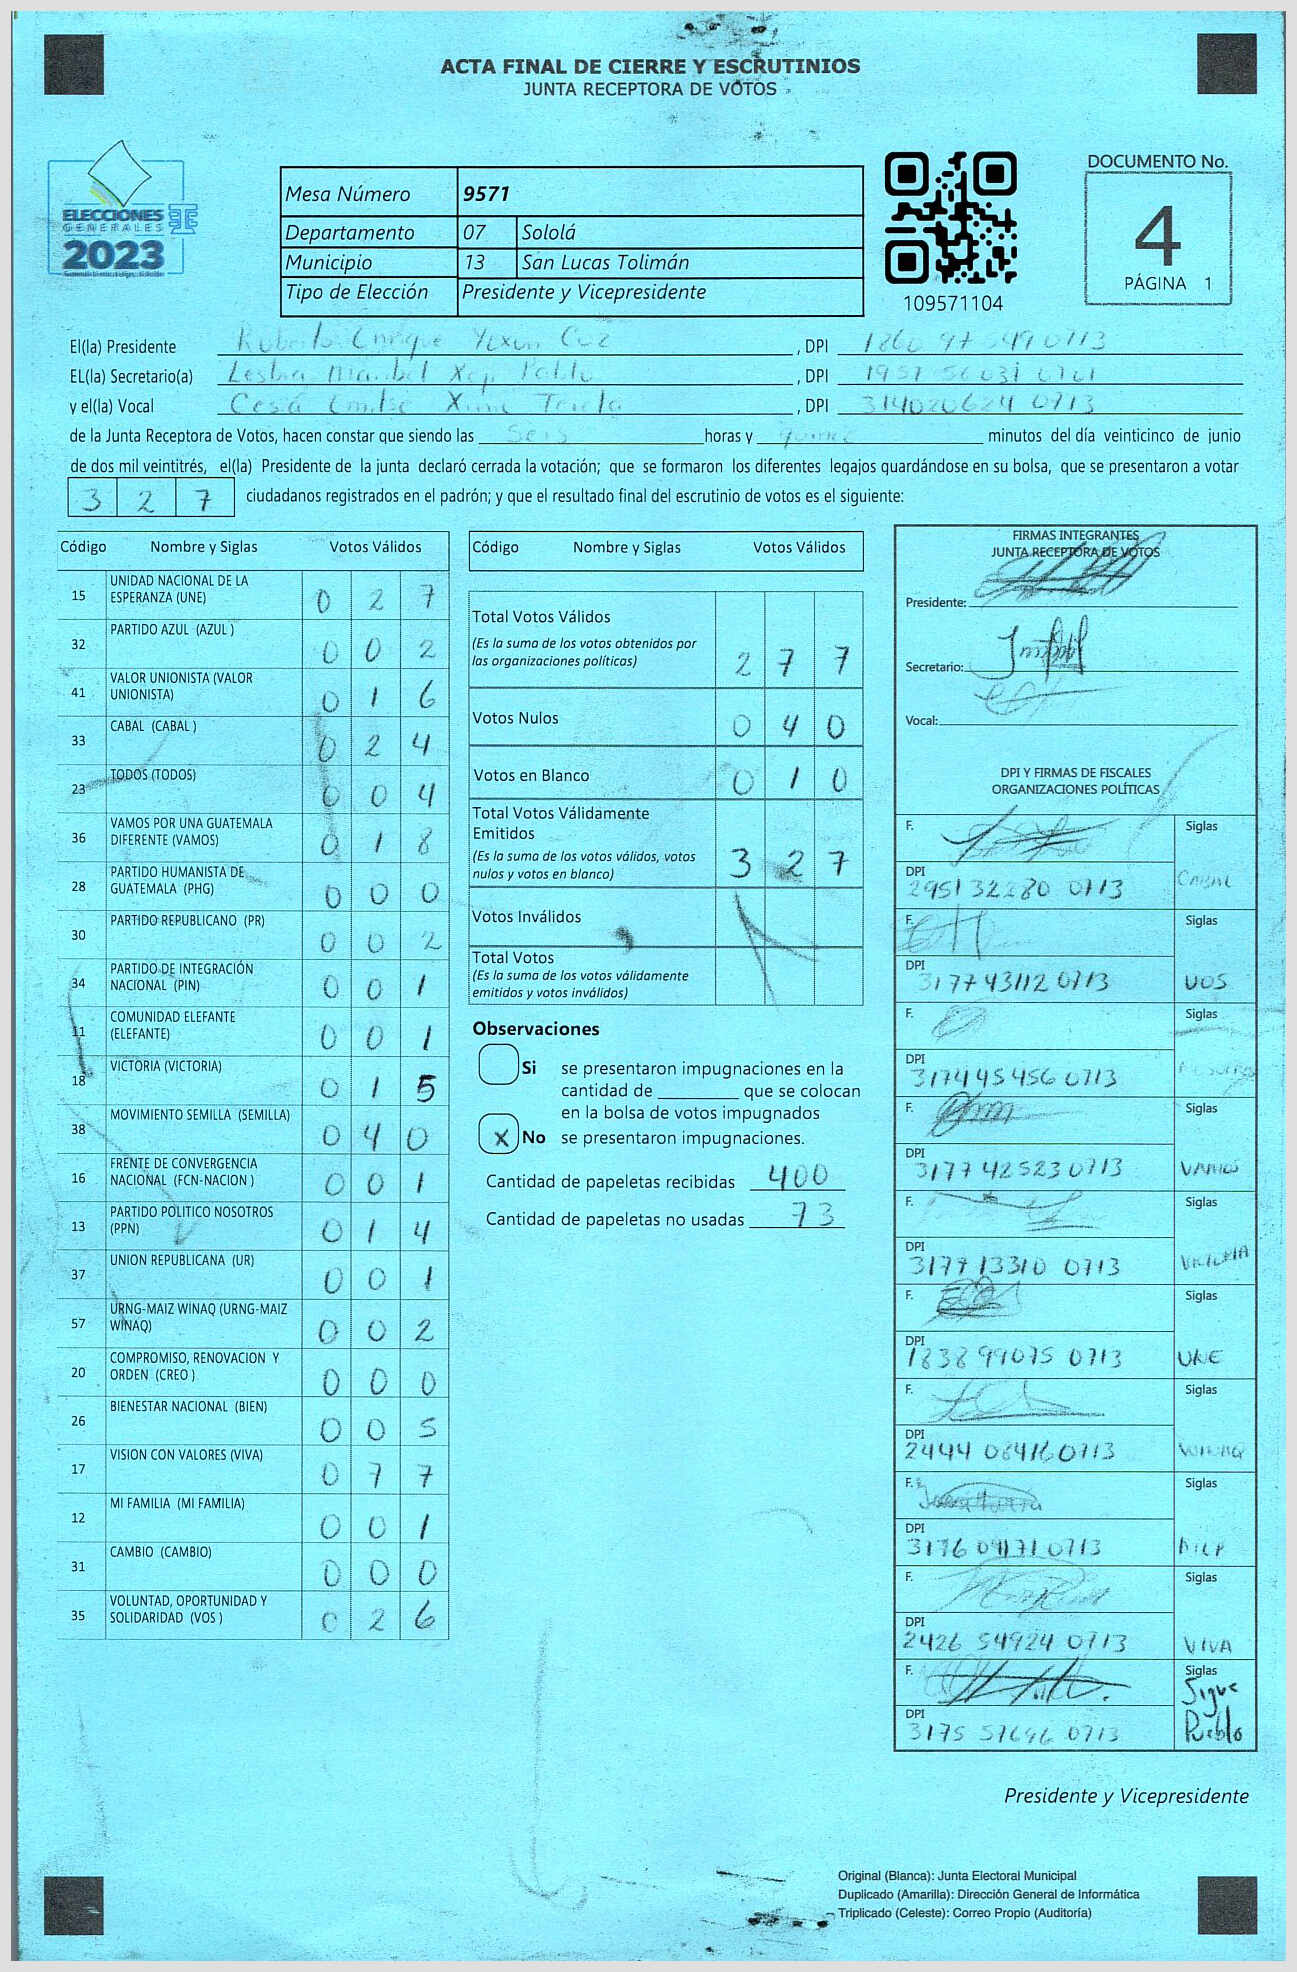 ACTA FINAL DE CIERRE Y ESCRUTINIOS
JUNTA RECEPTORA DE VOTOS
ELECCIONES
GENERALES
2023
Mesa Número 9571
Departamento 07 Sololá
Municipio 13 San Lucas Tolimán
Tipo de Elección Presidente y Vicepresidente
109571104
DOCUMENTO No.
4
PÁGINA 1
El(la) Presidente Enrique , DPI
EL(la) Secretario(a) , DPI
y el(la) Vocal , DPI 314020624 0713
de la Junta Receptora de Votos, hacen constar que siendo las Seis horas y minutos del día veinticinco de junio
de dos mil veintitrés, el(la) Presidente de la junta declaró cerrada la votación; que se formaron los diferentes legajos guardándose en su bolsa, que se presentaron a votar
3 2 7 ciudadanos registrados en el padrón; y que el resultado final del escrutinio de votos es el siguiente:
Código Nombre y Siglas Votos Válidos
15 UNIDAD NACIONAL DE LA ESPERANZA (UNE) 0 2 7
32 PARTIDO AZUL (AZUL ) 0 0 2
41 VALOR UNIONISTA (VALOR UNIONISTA) 0 1 6
33 CABAL (CABAL ) 0 2 4
23 TODOS (TODOS) 0 0 4
36 VAMOS POR UNA GUATEMALA DIFERENTE (VAMOS) 0 1 8
28 PARTIDO HUMANISTA DE GUATEMALA (PHG) 0 0 0
30 PARTIDO REPUBLICANO (PR) 0 0 2
34 PARTIDO DE INTEGRACIÓN NACIONAL (PIN) 0 0 1
11 COMUNIDAD ELEFANTE (ELEFANTE) 0 0 1
18 VICTORIA (VICTORIA) 0 1 5
38 MOVIMIENTO SEMILLA (SEMILLA) 0 4 0
16 FRENTE DE CONVERGENCIA NACIONAL (FCN-NACION ) 0 0 1
13 PARTIDO POLITICO NOSOTROS (PPN) 0 1 4
37 UNION REPUBLICANA (UR) 0 0 1
57 URNG-MAIZ WINAQ (URNG-MAIZ WINAQ) 0 0 2
20 COMPROMISO, RENOVACION Y ORDEN (CREO ) 0 0 0
26 BIENESTAR NACIONAL (BIEN) 0 0 5
17 VISION CON VALORES (VIVA) 0 7 7
12 MI FAMILIA (MI FAMILIA) 0 0 1
31 CAMBIO (CAMBIO) 0 0 0
35 VOLUNTAD, OPORTUNIDAD Y SOLIDARIDAD (VOS ) 0 2 6
Código Nombre y Siglas Votos Válidos
Total Votos Válidos
(Es la suma de los votos obtenidos por
las organizaciones políticas) 2 7 7
Votos Nulos 0 4 0
Votos en Blanco 0 1 0
Total Votos Válidamente
Emitidos
(Es la suma de los votos válidos, votos
nulos y votos en blanco) 3 2 7
Votos Inválidos
Total Votos
(Es la suma de los votos válidamente
emitidos y votos inválidos)
Observaciones
Si se presentaron impugnaciones en la
cantidad de ________ que se colocan
en la bolsa de votos impugnados
X No se presentaron impugnaciones.
Cantidad de papeletas recibidas 400
Cantidad de papeletas no usadas 73
FIRMAS INTEGRANTES
JUNTA RECEPTORA DE VOTOS
Presidente:
Secretario:
Vocal:
DPI Y FIRMAS DE FISCALES
ORGANIZACIONES POLÍTICAS
F. Siglas
DPI 295132280 0713 CABAL
F. Siglas
DPI 317743112 0713 VOS
F. Siglas
DPI 317445456 0713
F. Siglas
DPI 317742523 0713 VAMOS
F. Siglas
DPI 317713310 0713 VICTORIA
F. Siglas
DPI 183899075 0713 UNE
F. Siglas
DPI 2444 08416 0713 WINAQ
F. Siglas
DPI 3176 04171 0713
F. Siglas
DPI 2426 54924 0713 VIVA
F. Siglas
DPI 3175 57646 0713 Sigue Pueblo
Presidente y Vicepresidente
Original (Blanca): Junta Electoral Municipal
Duplicado (Amarilla): Dirección General de Informática
Triplicado (Celeste): Correo Propio (Auditoría)